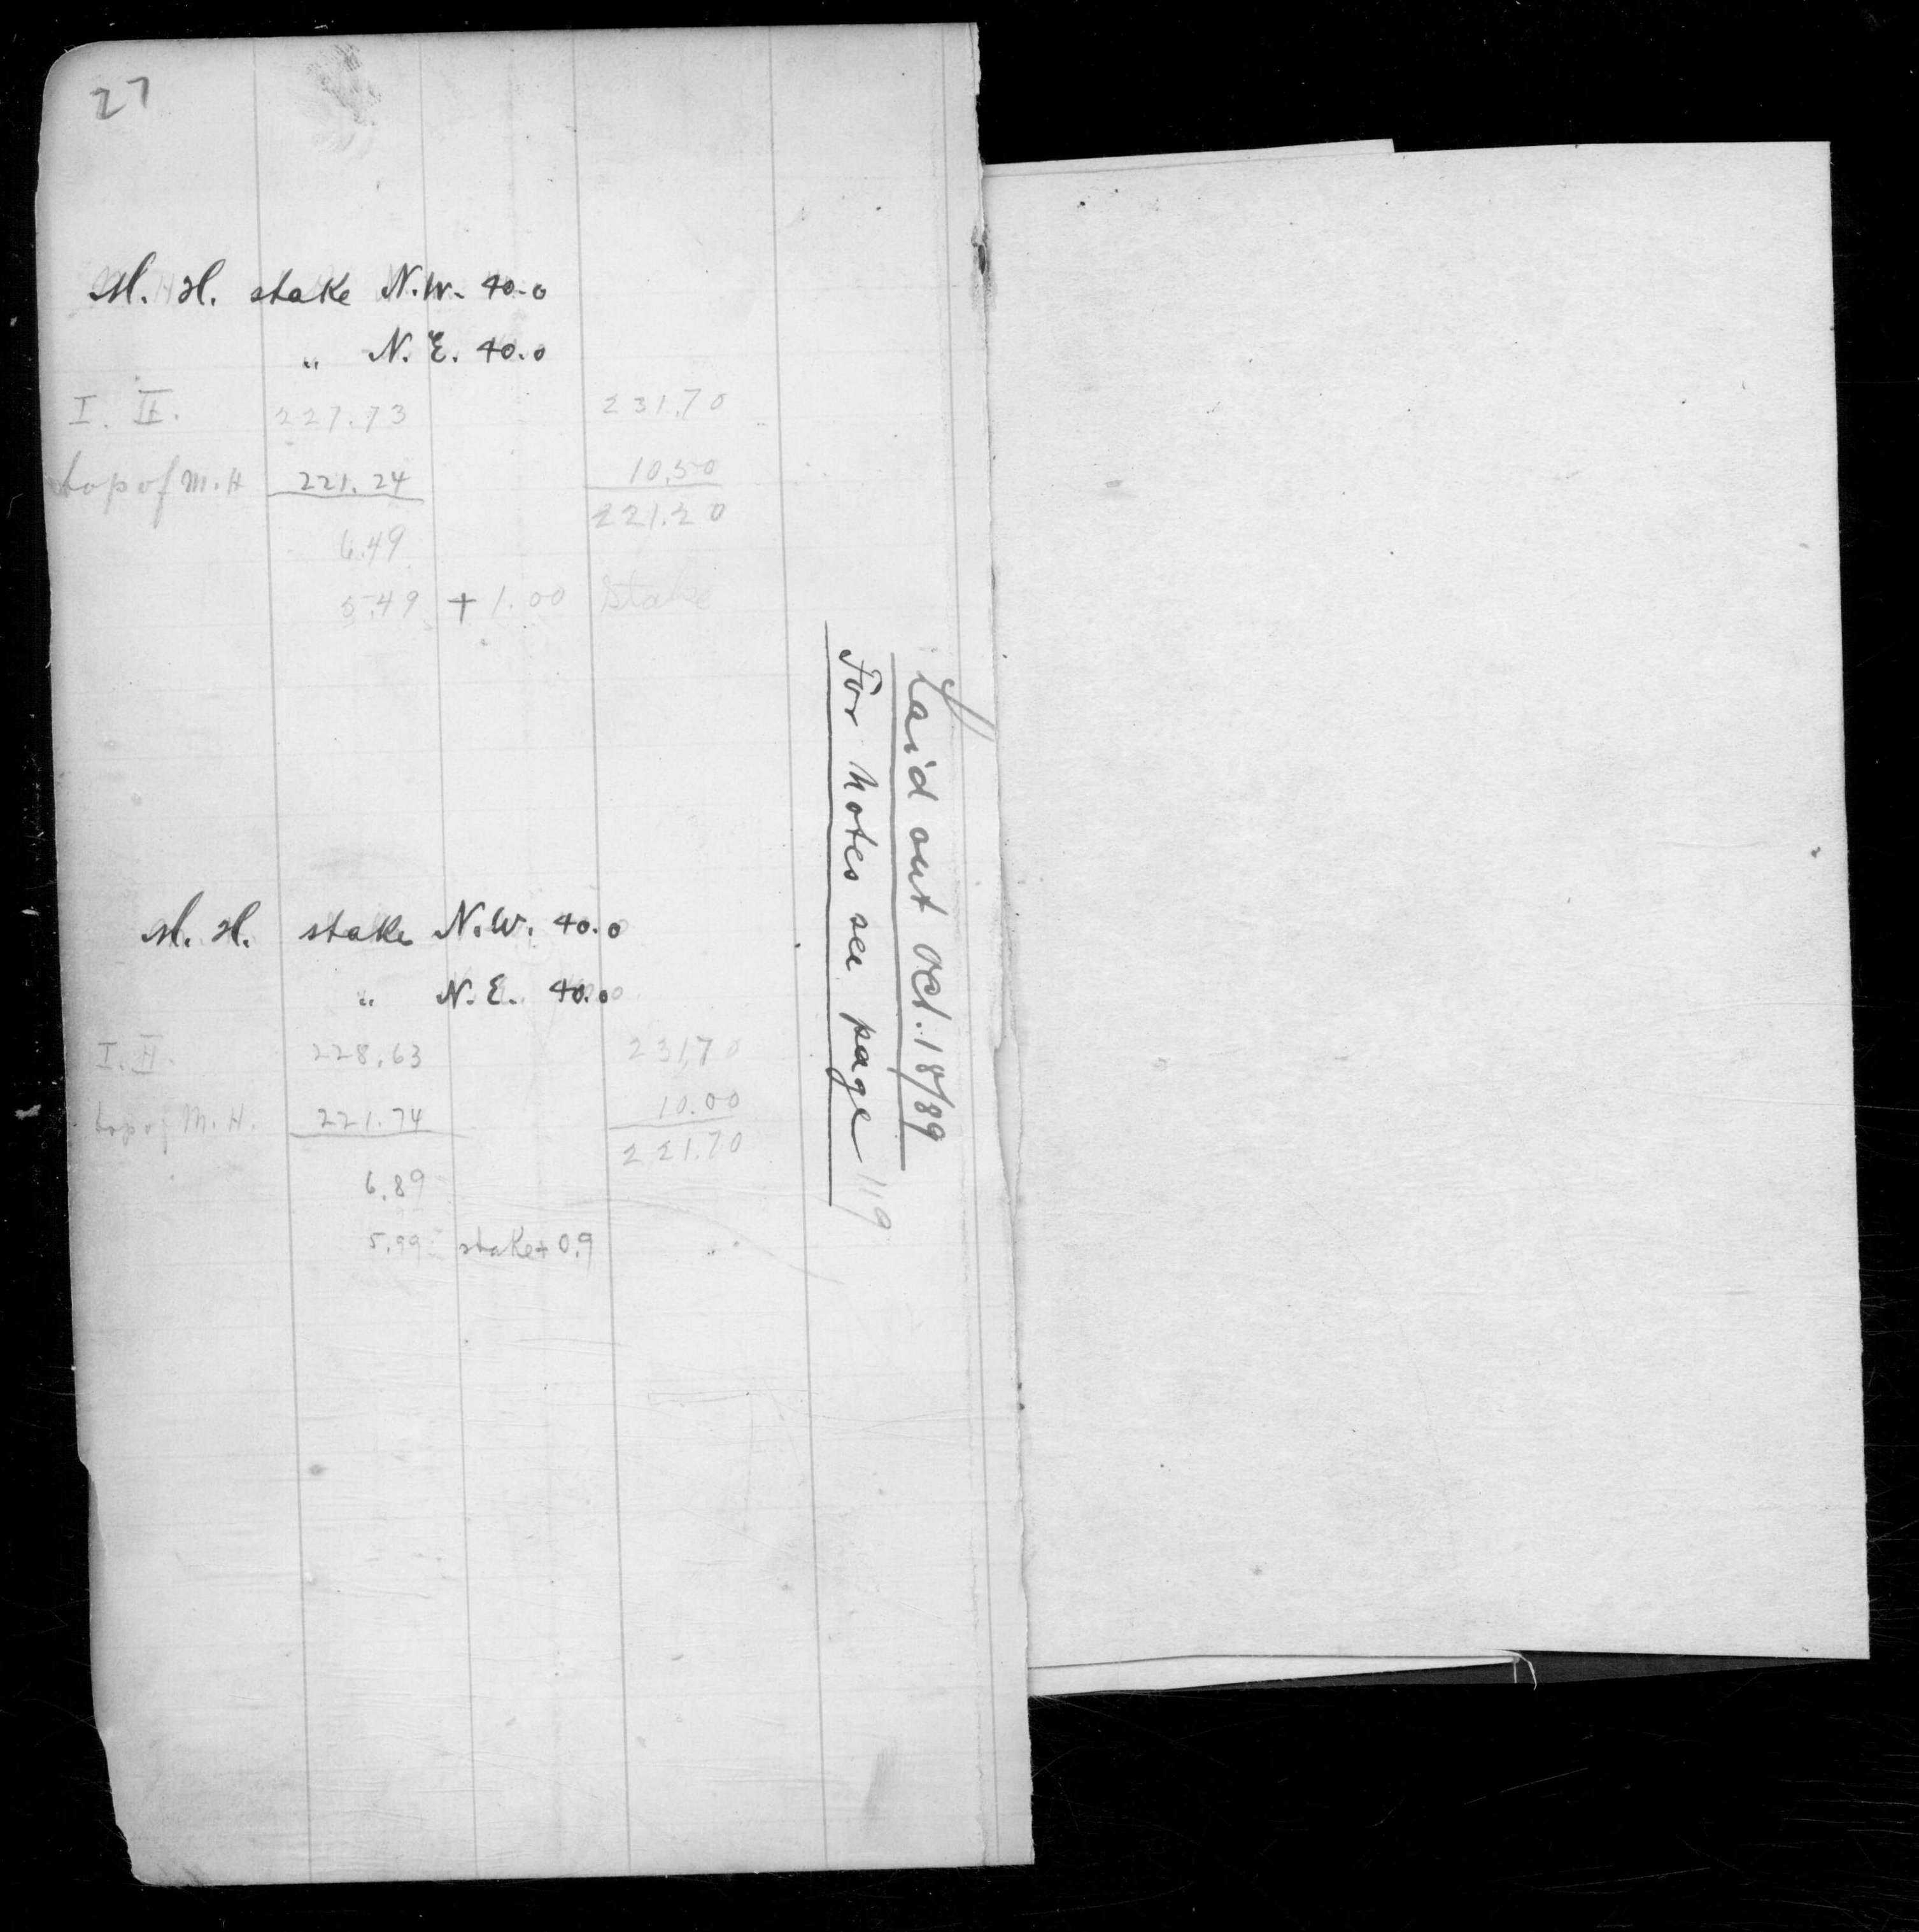 27
M. H. stake N.W. 40.0
" N.E. 40.0
I. II. 227.73 231.70
top of M.H 221.24 10.50
6.49 221.20
5.49 + 1.00 stake
Laid out Oct. 18/89
For notes see page 119
M. H. stake N.W. 40.0
" N.E. 40.0
I. II. 228.63 231.70
top of M.H. 221.74 10.00
6.89 221.70
5.99 stake + 0.9